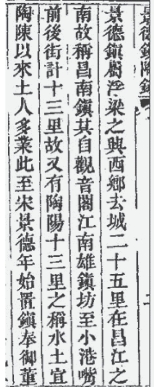 景德鎮屬浮梁之興西鄉去城二十五里在昌江之
南故稱昌南鎮其自觀音閣江南雄鎮坊至小港嘴
前後街計十三里故又有陶陽十三里之稱水土宜
陶陳以來土人多業此至宋景德年始置鎮奉御董